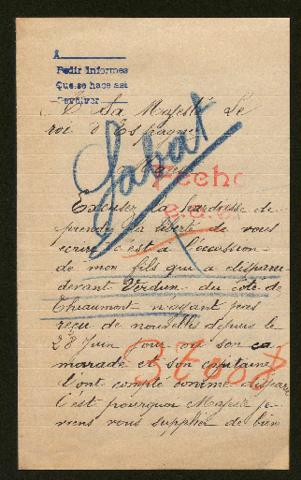 A
Pedir informes
Que se hace así
A Sa Majesté Le
roi d'Espagne
Sabat
Fecho
Excusez la hardiesse de
prendre la liberté de vous
ecrire c'est a l'occassion
de mon fils qui a disparu
devant Verdun du coté de
Thiaumont n'ayant pas
reçu de nouvelles depuis le
28 Juin jour ou son ca
marade et son capitaine
l'ont compté comme disparu
C'est pourquoi Majesté je
viens vous supplier de bien